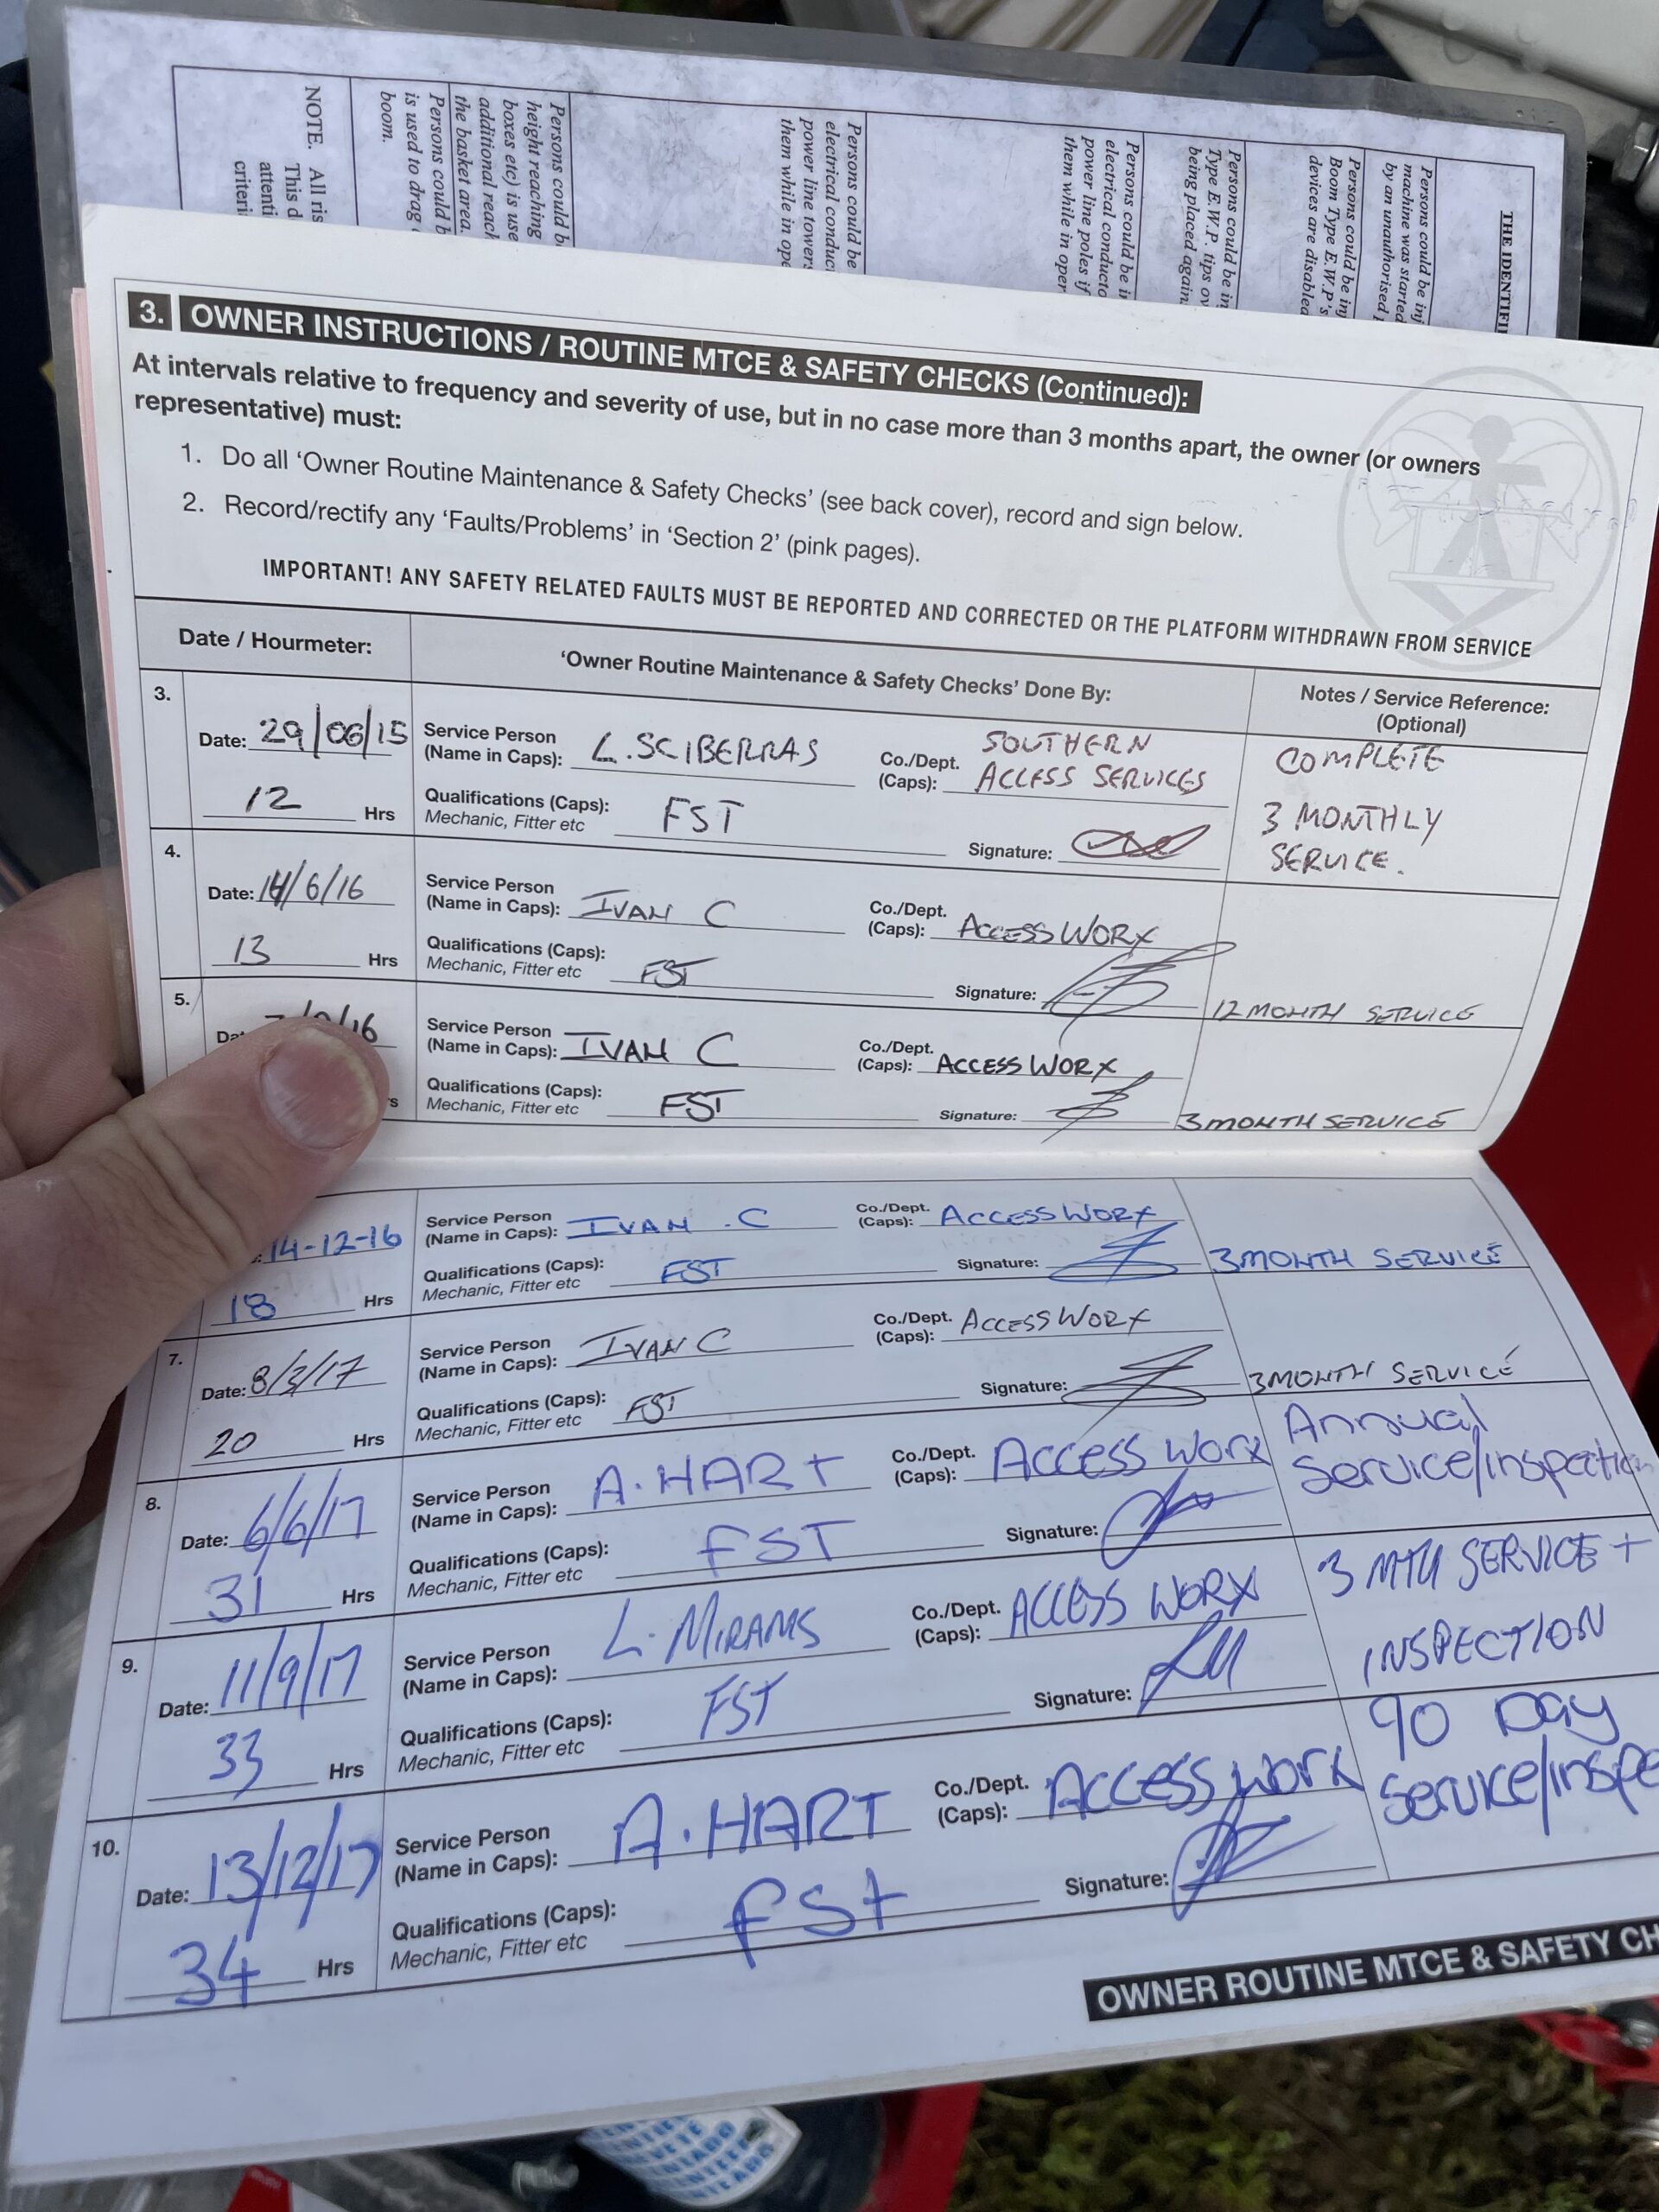 THE IDENTIFI
Persons could be inj
machine was started
by an unauthorised
Persons could be inj
Boom Type E.W.P's
devices are disabled
Persons could be in
Type E.W.P. tips ov
being placed again
Persons could be i
electrical conducto
power line poles if
them while in oper
Persons could be
electrical conduc
power line towers
them while in ope
Persons could b
height reaching
boxes etc) is use
additional reach
the basket area.
Persons could b
is used to drag
boom.
NOTE. All ris
This d
attenti
criteri
3. OWNER INSTRUCTIONS / ROUTINE MTCE & SAFETY CHECKS (Continued):
At intervals relative to frequency and severity of use, but in no case more than 3 months apart, the owner (or owners
representative) must:
1. Do all ‘Owner Routine Maintenance & Safety Checks’ (see back cover), record and sign below.
2. Record/rectify any ‘Faults/Problems’ in ‘Section 2’ (pink pages).
IMPORTANT! ANY SAFETY RELATED FAULTS MUST BE REPORTED AND CORRECTED OR THE PLATFORM WITHDRAWN FROM SERVICE
Date / Hourmeter:
‘Owner Routine Maintenance & Safety Checks’ Done By:
Notes / Service Reference:
(Optional)
3.
Date: 29/06/15
12 Hrs
Service Person
(Name in Caps): L.SCIBERRAS
Co./Dept.
(Caps): SOUTHERN
ACCESS SERVICES
Qualifications (Caps): FST
Mechanic, Fitter etc
Signature:
COMPLETE
3 MONTHLY
SERVICE.
4.
Date: 14/6/16
13 Hrs
Service Person
(Name in Caps): IVAN C
Co./Dept.
(Caps): ACCESS WORX
Qualifications (Caps):
Mechanic, Fitter etc FST
Signature:
12 MONTH SERVICE
5.
/16
Service Person
(Name in Caps): IVAN C
Co./Dept.
(Caps): ACCESS WORX
Qualifications (Caps):
Mechanic, Fitter etc FST
Signature:
3 MONTH SERVICE
14-12-16
18 Hrs
Service Person
(Name in Caps): IVAN .C
Co./Dept.
(Caps): ACCESS WORX
Qualifications (Caps):
Mechanic, Fitter etc FST
Signature:
3 MONTH SERVICE
7.
Date: 8/3/17
20 Hrs
Service Person
(Name in Caps): IVAN C
Co./Dept.
(Caps): ACCESS WORX
Qualifications (Caps):
Mechanic, Fitter etc FST
Signature:
3 MONTH SERVICE
8.
Date: 6/6/17
31 Hrs
Service Person
(Name in Caps): A. HART
Co./Dept.
(Caps): Access Worx
Qualifications (Caps):
Mechanic, Fitter etc FST
Signature:
Annual
Service/inspection
9.
Date: 11/9/17
33 Hrs
Service Person
(Name in Caps): L. MIRAMS
Co./Dept.
(Caps): ACCESS WORX
Qualifications (Caps):
Mechanic, Fitter etc FST
Signature:
3 MTH SERVICE +
INSPECTION
10.
Date: 13/12/17
34 Hrs
Service Person
(Name in Caps): A. HART
Co./Dept.
(Caps): Access worx
Qualifications (Caps):
Mechanic, Fitter etc FSt
Signature:
90 Day
Service/inspe
OWNER ROUTINE MTCE & SAFETY CH